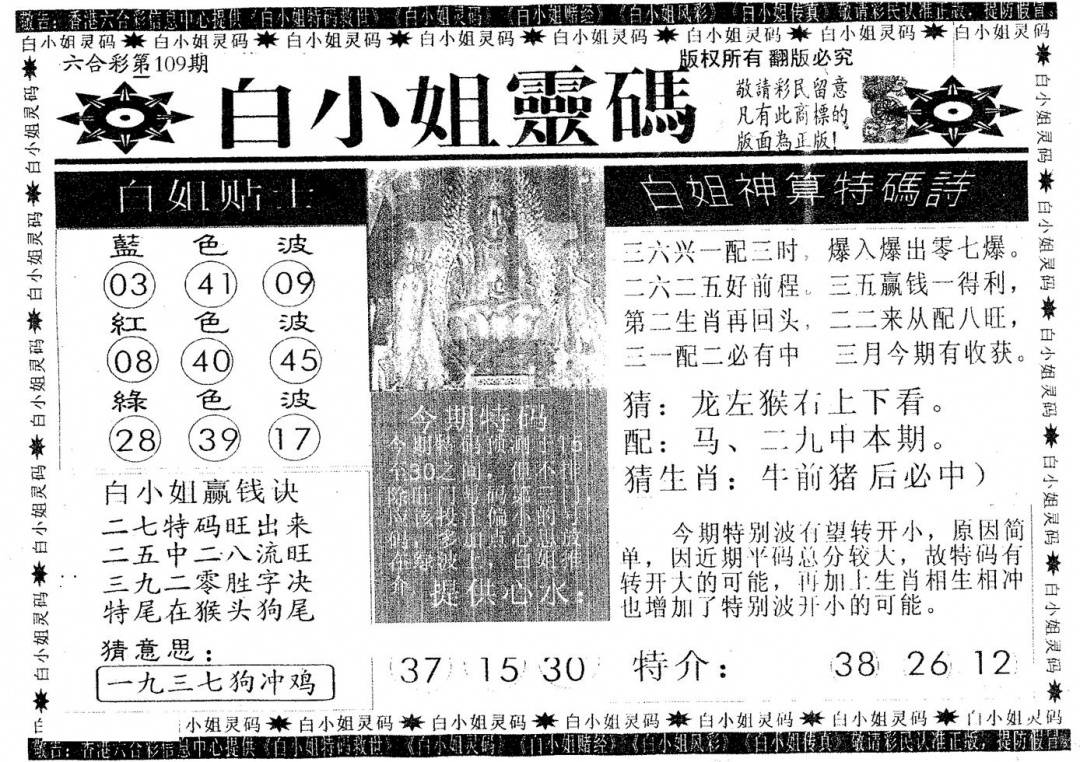 敬告：香港六合彩信息中心提供《白小姐特码救世》《白小姐灵码》《白小姐赌经》《白小姐风彩》《白小姐传真》敬请彩民认准正版，提防假冒
白小姐灵码 白小姐灵码 白小姐灵码 白小姐灵码 白小姐灵码 白小姐灵码 白小姐灵码 白小姐灵码
六合彩第109期
版权所有 翻版必究
白小姐靈碼
敬請彩民留意
凡有此商標的
版面為正版!
白姐贴士
藍色波
03 41 09
紅色波
08 40 45
綠色波
28 39 17
白小姐赢钱诀
二七特码旺出来
二五中二八流旺
三九二零胜字决
特尾在猴头狗尾
猜意思：
一九三七狗冲鸡
今期特码
提供心水：
37 15 30
白姐神算特碼詩
三六兴一配三时，爆入爆出零七爆。
二六二五好前程。三五赢钱一得利，
第二生肖再回头，二二来从配八旺，
三一配二必有中 三月今期有收获。
猜：龙左猴右上下看。
配：马、二九中本期。
猜生肖：牛前猪后必中）
今期特别波有望转开小，原因简
单，因近期平码总分较大，故特码有
转开大的可能，再加上生肖相生相冲
也增加了特别波开小的可能。
特介： 38 26 12
白小姐灵码 白小姐灵码 白小姐灵码 白小姐灵码 白小姐灵码
白小姐灵码 白小姐灵码 白小姐灵码 白小姐灵码 白小姐灵码
小姐灵码 白小姐灵码 白小姐灵码 白小姐灵码 白小姐灵码 白小姐灵码 白小姐灵码
敬告：香港六合彩信息中心提供《白小姐特码救世》《白小姐灵码》《白小姐赌经》《白小姐风彩》《白小姐传真》敬请彩民认准正版，提防假冒